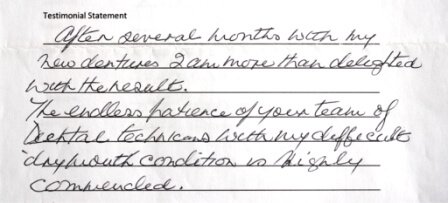 Testimonial Statement
After several months with my
new dentures I am more than delighted
with the result.
The endless patience of your team of
Dental technicans with my difficult
dry mouth condition is Highly
commended.